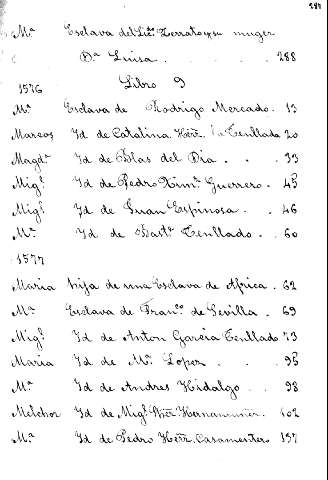 284
Mª Esclava del Liz.do Zerrato y su muger
Dª Luisa . . . 288
1576 Libro 9
Mª Esclava de Rodrigo Mercado . 13
Marcos Id de Catalina Herz. la Tenllada 20
Magdª Id de Blas del Dia . . . 33
Migl Id de Pedro Ximz Guerrero . 45
Migl Id de Juan Espinosa . . 46
Mª Id de Bastn Tenllado . . 60
1577
Maria hija de una Esclava de Africa . 62
Mª Esclava de Franco de Sevilla . 69
Migl Id de Anton Garcia Tenllado 73
Maria Id de Mn Lopez . . . 95
Mª Id de Andres Hidalgo . . 98
Melchor Id de Migl . 102
Mª Id de Pedro Herz. Casamentero 137